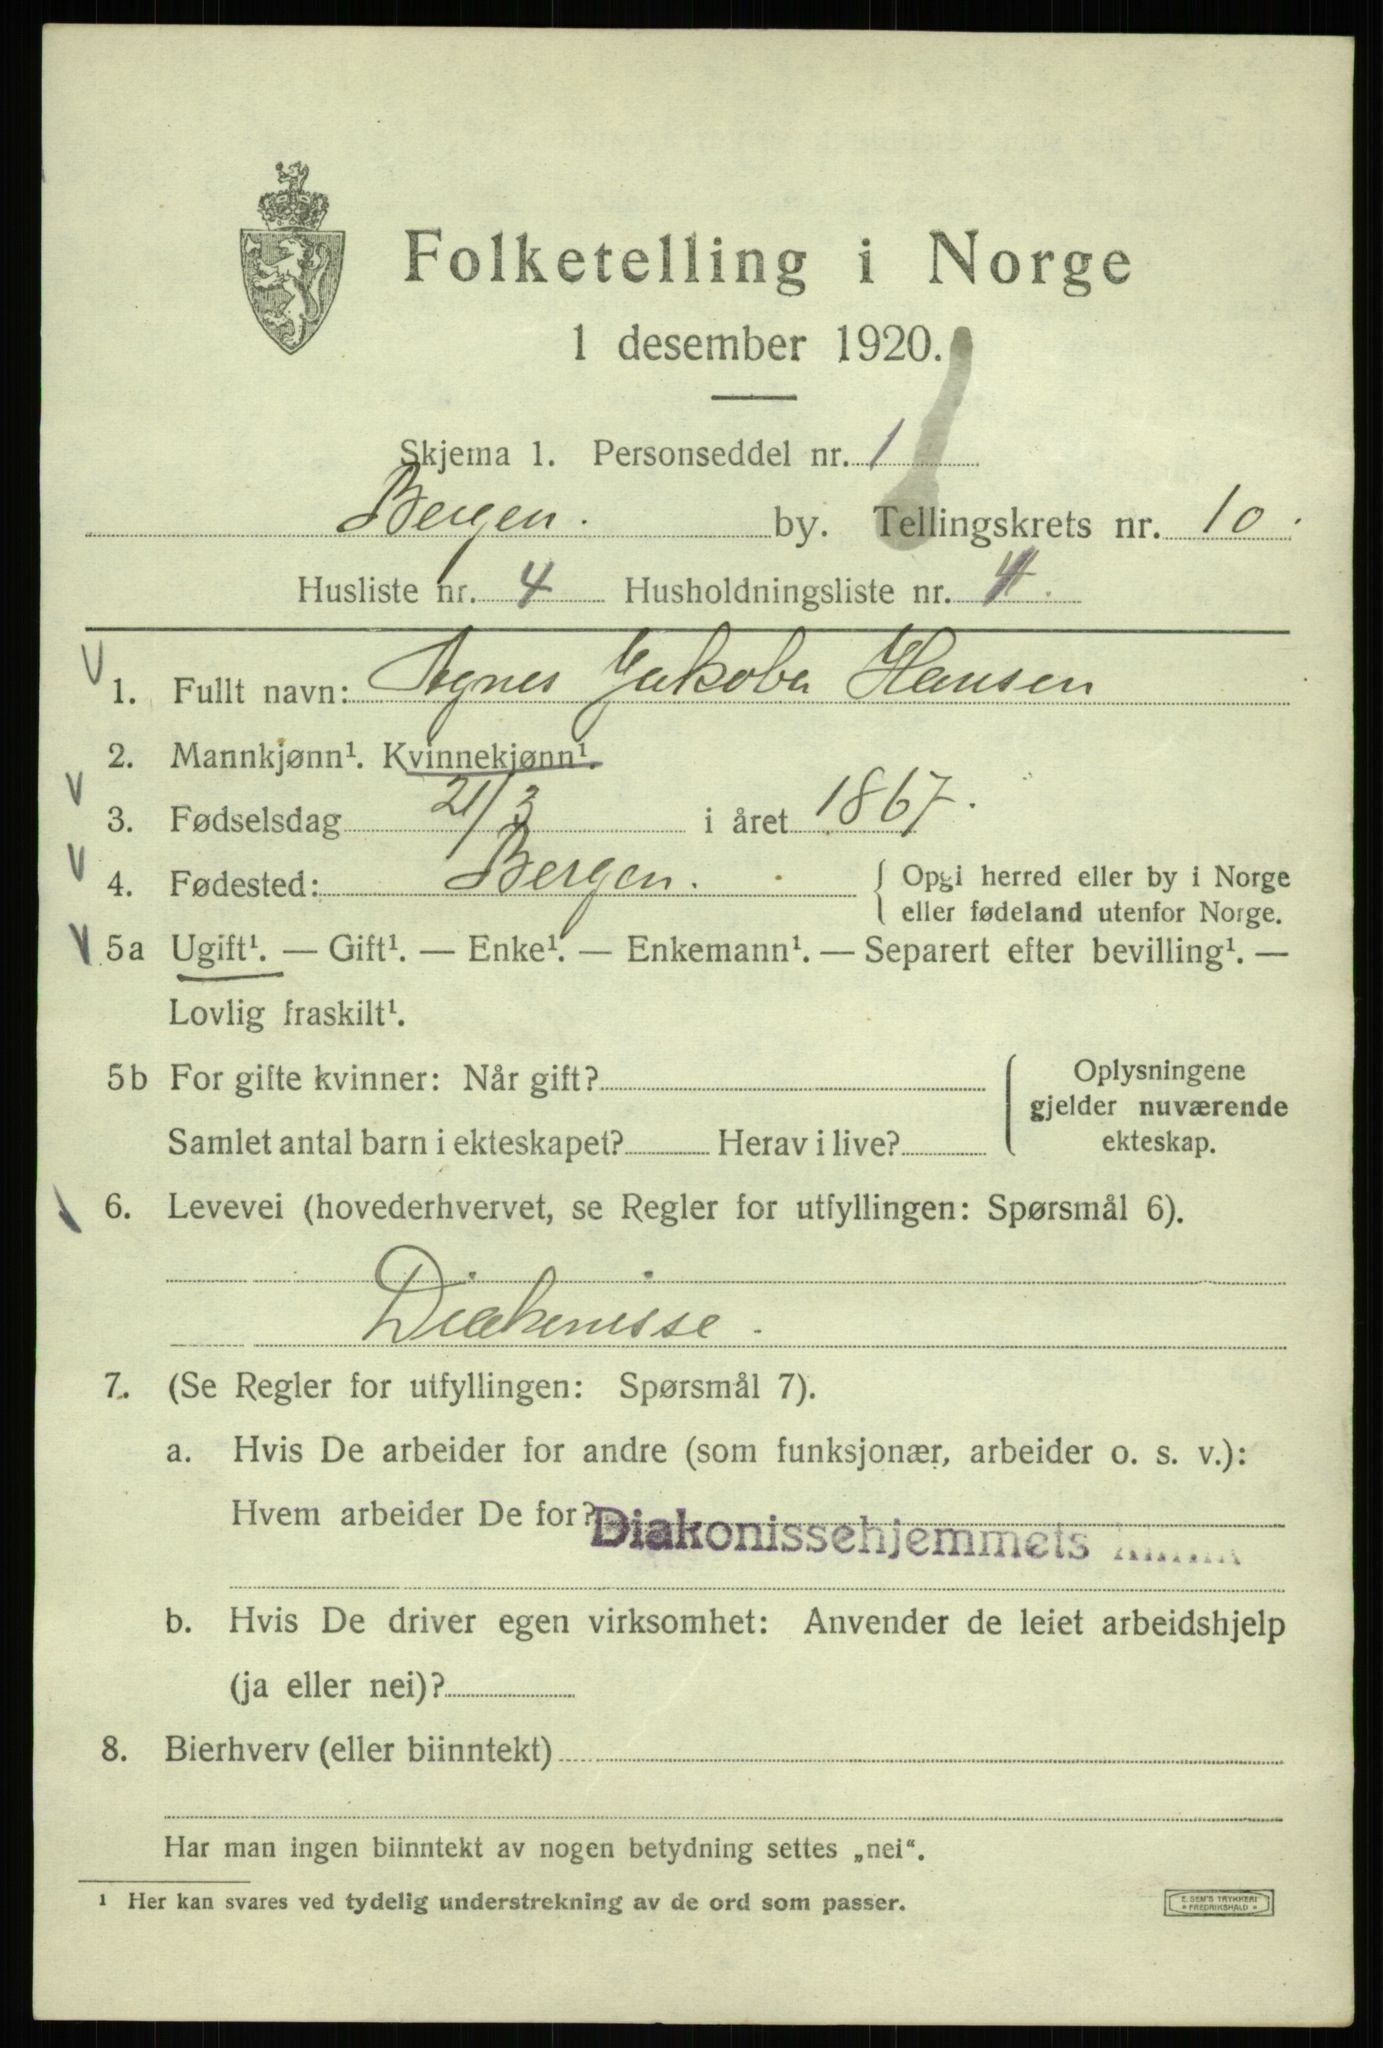 Folketelling i Norge
1 desember 1920.
Skjema 1. Personseddel nr. 1
Bergen. by. Tellingskrets nr. 10.
Husliste nr. 4 Husholdningsliste nr. 4.
1. Fullt navn: Agnes Jakoba Hansen
2. Mannkjønn¹. Kvinnekjønn¹.
3. Fødselsdag 21/3 i året 1867.
4. Fødested: Bergen. { Opgi herred eller by i Norge
eller fødeland utenfor Norge.
5a Ugift¹. — Gift¹. — Enke¹. — Enkemann¹. — Separert efter bevilling¹. —
Lovlig fraskilt¹.
5b For gifte kvinner: Når gift? ( Oplysningene
gjelder nuværende
Samlet antal barn i ekteskapet? Herav i live? ekteskap.
6. Levevei (hovederhvervet, se Regler for utfyllingen: Spørsmål 6).
Diakonisse.
7. (Se Regler for utfyllingen: Spørsmål 7).
a. Hvis De arbeider for andre (som funksjonær, arbeider o. s. v.):
Hvem arbeider De for? Diakonissehjemmets
b. Hvis De driver egen virksomhet: Anvender de leiet arbeidshjelp
(ja eller nei)?
8. Bierhverv (eller biinntekt)
Har man ingen biinntekt av nogen betydning settes „nei“.
¹ Her kan svares ved tydelig understrekning av de ord som passer.
E. SEM'S TRYKKERI
FREDRIKSHALD